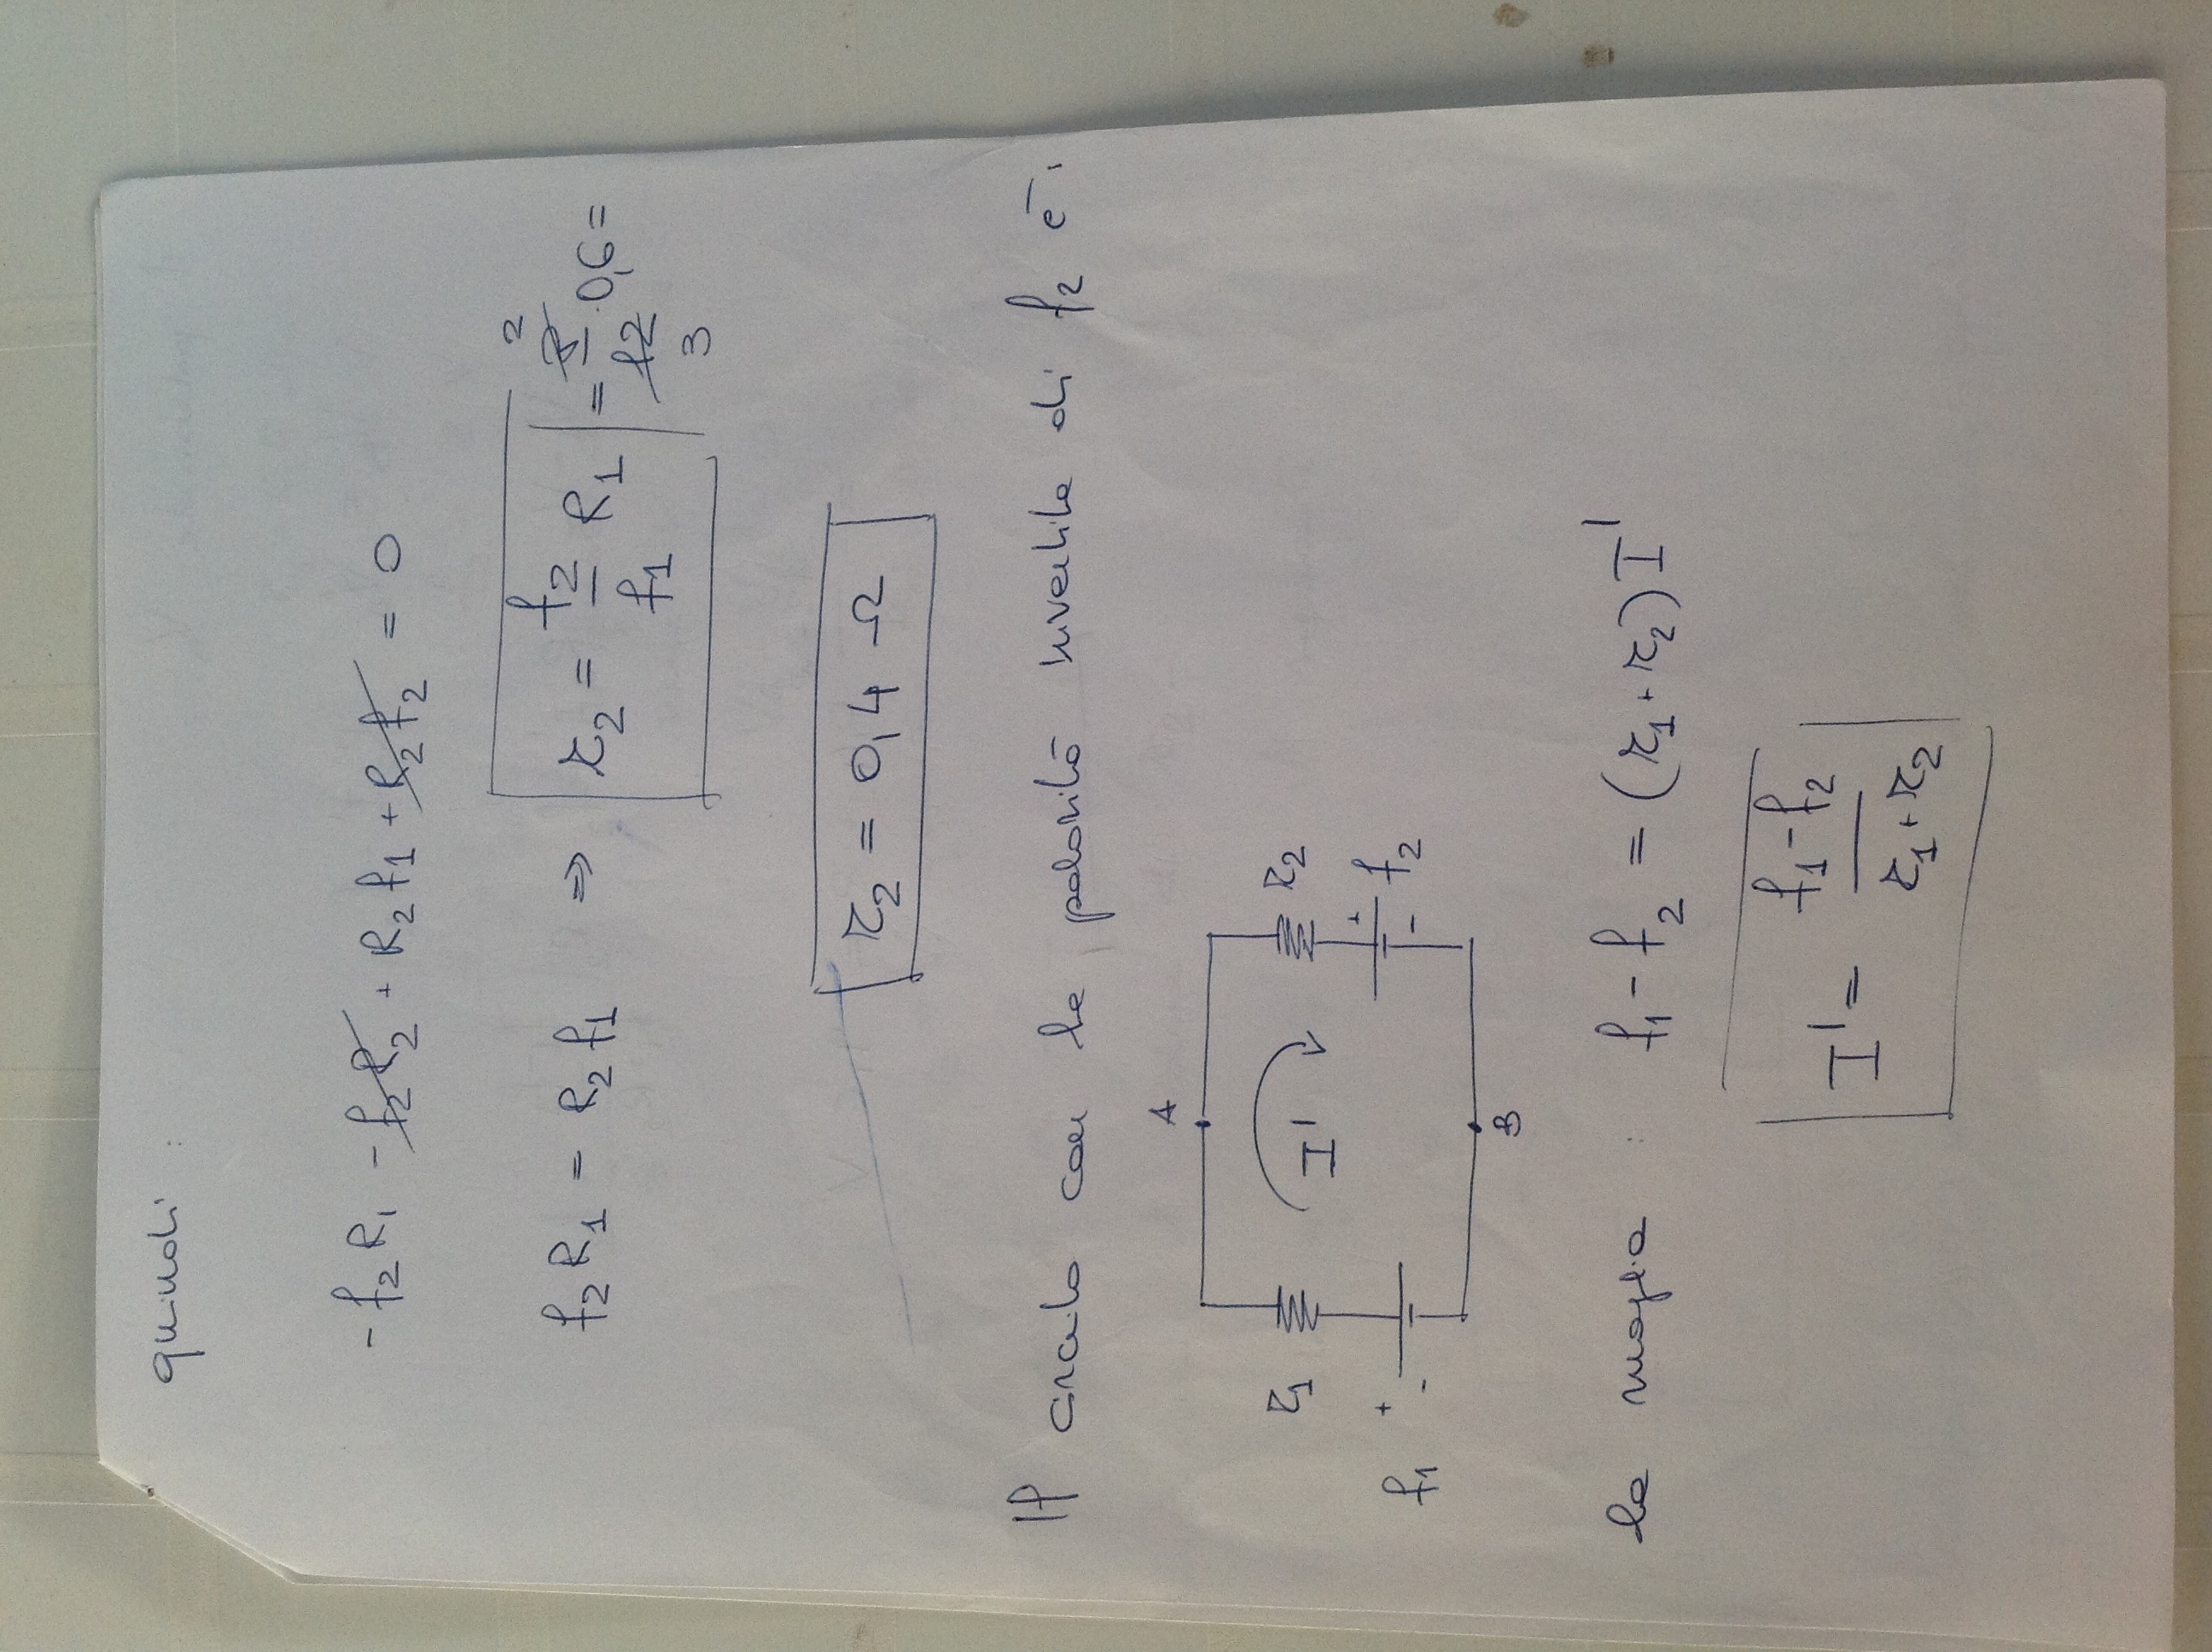 quindi :
-f₂ R₁ - f₂ R₂ + R₂ f₁ + R₂ f₂ = 0
f₂ R₁ = R₂ f₁ ⇒ r₂ = f₂/f₁ R₁ = 8/12 2/3 · 0,6 =
r₂ = 0,4 Ω
Il circuito con la polarità invertita di f₂ è :
A
r₁ I' r₂
f₁ + - + - f₂
B
la maglia : f₁ - f₂ = (r₁ + r₂) I'
I' = f₁ - f₂ / r₁ + r₂